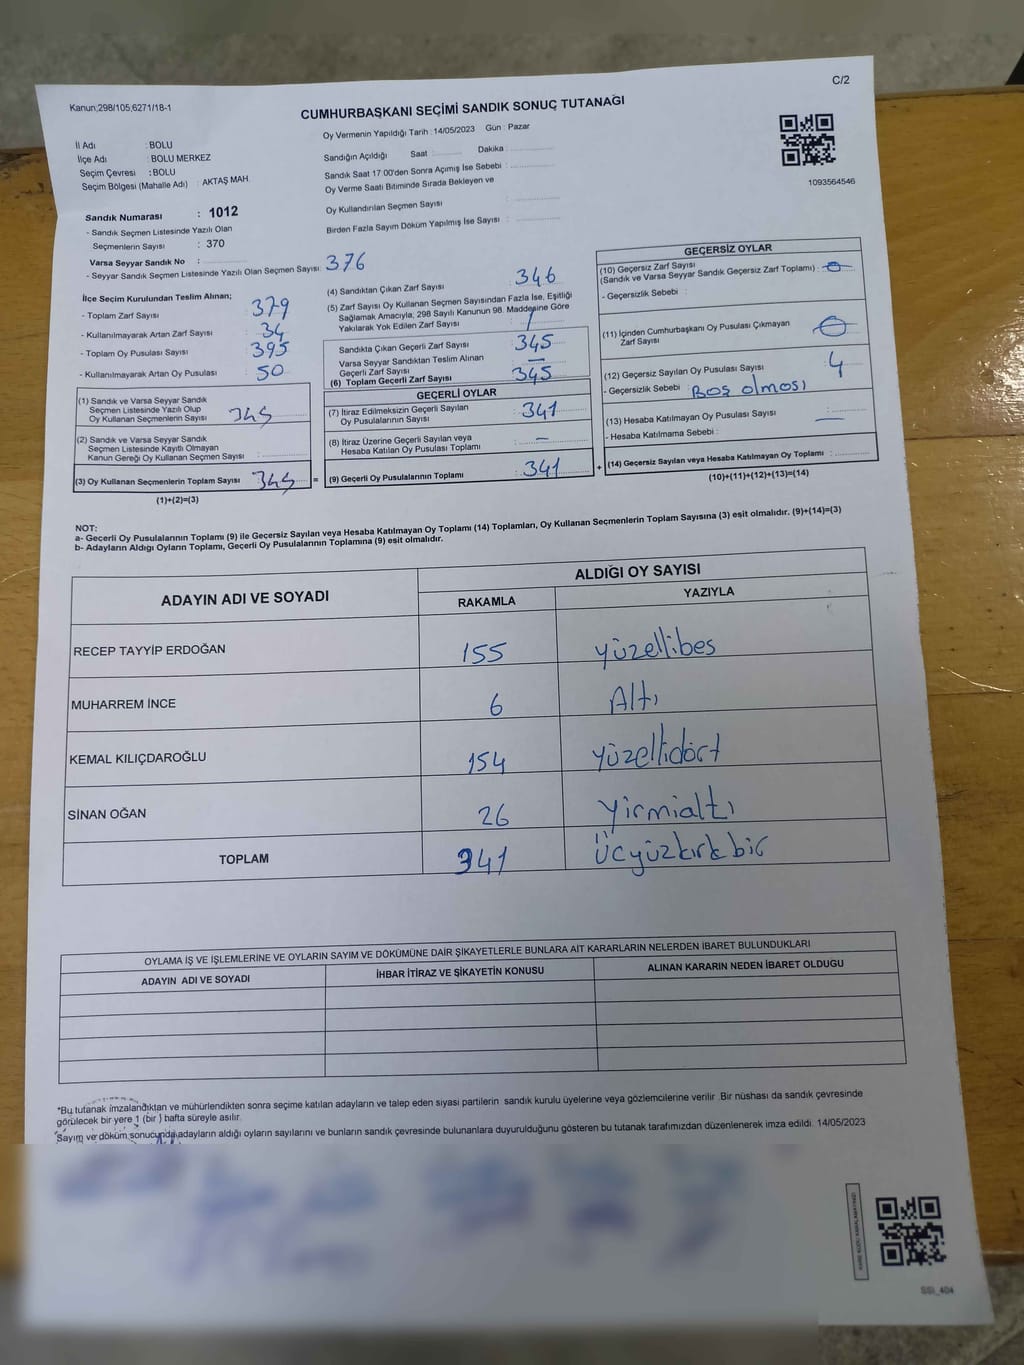 C/2
Kanun;298/105,6271/18-1
CUMHURBAŞKANI SEÇİMİ SANDIK SONUÇ TUTANAĞI
Oy Vermenin Yapıldığı Tarih : 14/05/2023 Gün : Pazar
İl Adı : BOLU
İlçe Adı : BOLU MERKEZ
Seçim Çevresi : BOLU
Seçim Bölgesi (Mahalle Adı) : AKTAŞ MAH.
Sandığın Açıldığı Saat : Dakika :
Sandık Saat 17:00'den Sonra Açımış İse Sebebi :
Oy Verme Saati Bitiminde Sırada Bekleyen ve
Oy Kullandırılan Seçmen Sayısı :
Birden Fazla Sayım Döküm Yapılmış İse Sayısı :
1093564546
Sandık Numarası : 1012
- Sandık Seçmen Listesinde Yazılı Olan
Seçmenlerin Sayısı : 370
Varsa Seyyar Sandık No :
- Seyyar Sandık Seçmen Listesinde Yazılı Olan Seçmen Sayısı: 376
İlçe Seçim Kurulundan Teslim Alınan;
- Toplam Zarf Sayısı : 379
- Kullanılmayarak Artan Zarf Sayısı : 34
- Toplam Oy Pusulası Sayısı : 395
- Kullanılmayarak Artan Oy Pusulası : 50
(1) Sandık ve Varsa Seyyar Sandık
Seçmen Listesinde Yazılı Olup
Oy Kullanan Seçmenlerin Sayısı : 345
(2) Sandık ve Varsa Seyyar Sandık
Seçmen Listesinde Kayıtlı Olmayan
Kanun Gereği Oy Kullanan Seçmen Sayısı :
(3) Oy Kullanan Seçmenlerin Toplam Sayısı : 345
(1)+(2)=(3)
=
(4) Sandıktan Çıkan Zarf Sayısı : 346
(5) Zarf Sayısı Oy Kullanan Seçmen Sayısından Fazla İse, Eşitliği
Sağlamak Amacıyla; 298 Sayılı Kanunun 98. Maddesine Göre
Yakılarak Yok Edilen Zarf Sayısı : 1
Sandıkta Çıkan Geçerli Zarf Sayısı : 345
Varsa Seyyar Sandıktan Teslim Alınan
Geçerli Zarf Sayısı : —
(6) Toplam Geçerli Zarf Sayısı : 345
GEÇERLİ OYLAR
(7) İtiraz Edilmeksizin Geçerli Sayılan
Oy Pusulasının Sayısı : 341
(8) İtiraz Üzerine Geçerli Sayılan veya
Hesaba Katılan Oy Pusulası Toplamı : —
(9) Geçerli Oy Pusulalarının Toplamı : 341
+
GEÇERSİZ OYLAR
(10) Geçersiz Zarf Sayısı
(Sandık ve Varsa Seyyar Sandık Geçersiz Zarf Toplamı) : 0
- Geçersizlik Sebebi :
(11) İçinden Cumhurbaşkanı Oy Pusulası Çıkmayan
Zarf Sayısı : 0
(12) Geçersiz Sayılan Oy Pusulası Sayısı : 4
- Geçersizlik Sebebi : Boş olması
(13) Hesaba Katılmayan Oy Pusulası Sayısı : —
- Hesaba Katılmama Sebebi :
(14) Geçersiz Sayılan veya Hesaba Katılmayan Oy Toplamı :
(10)+(11)+(12)+(13)=(14)
NOT:
a- Geçerli Oy Pusulalarının Toplamı (9) ile Geçersiz Sayılan veya Hesaba Katılmayan Oy Toplamı (14) Toplamları, Oy Kullanan Seçmenlerin Toplam Sayısına (3) eşit olmalıdır. (9)+(14)=(3)
b- Adayların Aldığı Oyların Toplamı, Geçerli Oy Pusulalarının Toplamına (9) eşit olmalıdır.
ADAYIN ADI VE SOYADI
ALDIĞI OY SAYISI
RAKAMLA YAZIYLA
RECEP TAYYİP ERDOĞAN 155 yüzellibeş
MUHARREM İNCE 6 Altı
KEMAL KILIÇDAROĞLU 154 yüzellidört
SİNAN OĞAN 26 yirmialtı
TOPLAM 341 Üçyüzkırkbir
OYLAMA İŞ VE İŞLEMLERİNE VE OYLARIN SAYIM VE DÖKÜMÜNE DAİR ŞİKAYETLERLE BUNLARA AİT KARARLARIN NELERDEN İBARET BULUNDUKLARI
ADAYIN ADI VE SOYADI İHBAR İTİRAZ VE ŞİKAYETİN KONUSU ALINAN KARARIN NEDEN İBARET OLDUĞU
*Bu tutanak imzalandıktan ve mühürlendikten sonra seçime katılan adayların ve talep eden siyasi partilerin sandık kurulu üyelerine veya gözlemcilerine verilir. Bir nüshası da sandık çevresinde
görülecek bir yere 1 (bir) hafta süreyle asılır.
*Sayım ve döküm sonucunda adayların aldığı oyların sayılarını ve bunların sandık çevresinde bulunanlara duyurulduğunu gösteren bu tutanak tarafımızdan düzenlenerek imza edildi. 14/05/2023
SSI_404